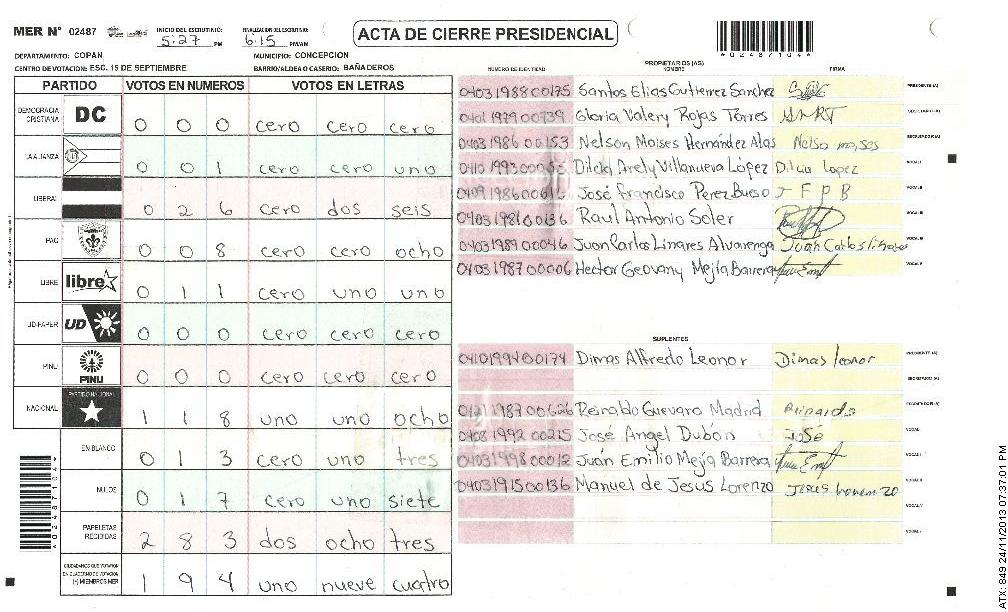 MER N° 02487
INICIO DEL ESCRUTINIO: 5:27 PM
FINALIZACION DEL ESCRUTINIO: 6:15 PM/AM
ACTA DE CIERRE PRESIDENCIAL
*02487104*
DEPARTAMENTO: COPAN
MUNICIPIO: CONCEPCION
CENTRO DE VOTACION: ESC. 15 DE SEPTIEMBRE
BARRIO/ALDEA O CASERIO: BAÑADEROS
PARTIDO VOTOS EN NUMEROS VOTOS EN LETRAS
DEMOCRACIA CRISTIANA DC 0 0 0 cero cero cero
LA ALIANZA 0 0 1 cero cero uno
LIBERAL 0 2 6 cero dos seis
PAC 0 0 8 cero cero ocho
LIBRE libre 0 1 1 cero uno uno
UD-FAPER UD 0 0 0 cero cero cero
PINU PINU 0 0 0 cero cero cero
NACIONAL PARTIDO NACIONAL 1 1 8 uno uno ocho
EN BLANCO 0 1 3 cero uno tres
NULOS 0 1 7 cero uno siete
PAPELETAS RECIBIDAS 2 8 3 dos ocho tres
CIUDADANOS QUE VOTARON EN CUADERNO DE VOTACION (+) MIEMBROS MER 1 9 4 uno nueve cuatro
*02487104*
PROPIETARIOS (AS)
NUMERO DE IDENTIDAD NOMBRE FIRMA
0403198800175 Santos Elias Gutierrez Sanchez PRESIDENTE (A)
0401197900739 Gloria Valery Rojas Torres SECRETARIO (A)
0403198600153 Nelson Moises Hernández Alas Nelso moises ESCRUTADOR (A)
Dilcia Arely Villanueva López Dilcia Lopez VOCAL I
José Francisco Perez Bueso J F P B VOCAL II
0403198100136 Raul Antonio Soler VOCAL III
0403198900046 Juan Carlos Linares Alvarenga Juan Carlos linares
0403198700006 Hector Geovany Mejía Barrera VOCAL V
SUPLENTES
0410199400174 Dimas Alfredo Leonor Dimas leonor PRESIDENTE (A)
SECRETARIO (A)
Reinaldo Guevara Madrid ESCRUTADOR (A)
0408199200215 José Angel Dubón José VOCAL I
0403199800012 Juan Emilio Mejía Barrera
0403191500136 Manuel de Jesus Lorenzo Jesus Lorenzo
ATX: 849 24/11/2013 07:37:01 PM